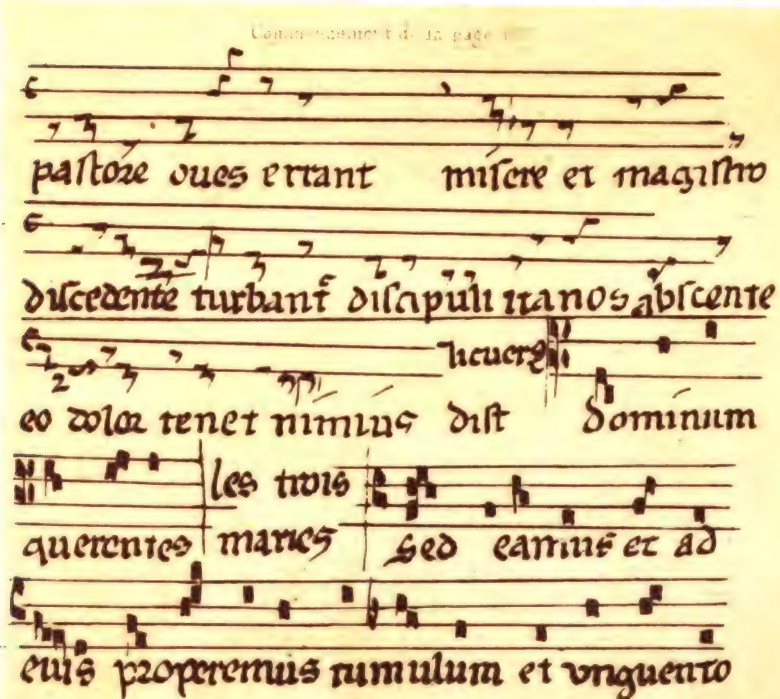 Commencement de la page
pastore oues errant misere et magistro
discedente turbant discipuli ita nos abscente
eo dolor tenet nimius dist dominum
querentes les trois maries sed eamus et ad
euis properemus tumulum et unguento